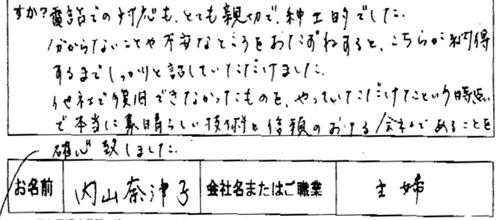 すか?電話での対応も、とても親切で、紳士的でした。
分からないことや不安なところをおたずねすると、こちらが納得
するまでしっかりと話していただけました。
他社で復旧できなかったものを、やっていただけたという時点
で本当に素晴らしい技術と信頼のおける会社であることを
確心致しました。
お名前 内山奈津子 会社名またはご職業 主婦